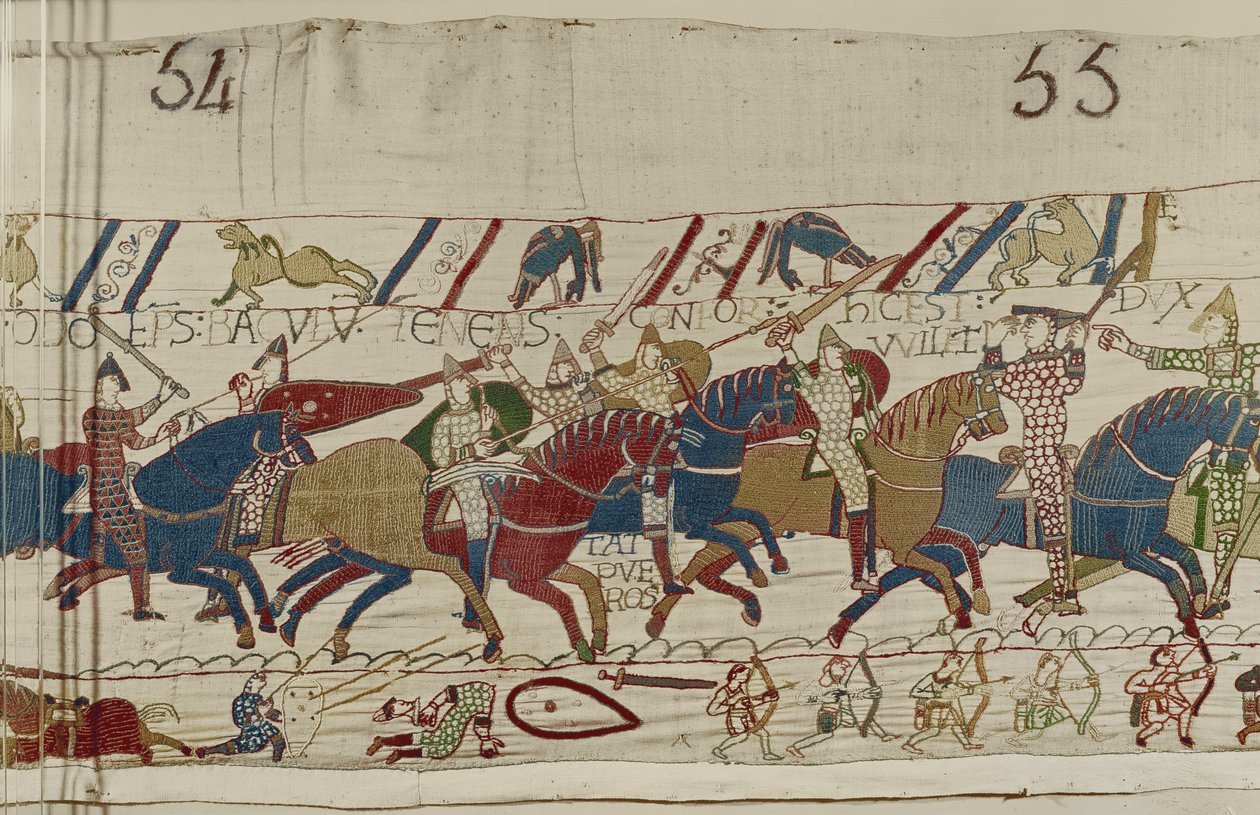 54 55
E
ODO EPS: BACULU: TENENS: CONFOR: HIC EST: DVX
WILEL
TAT
PVE
ROS